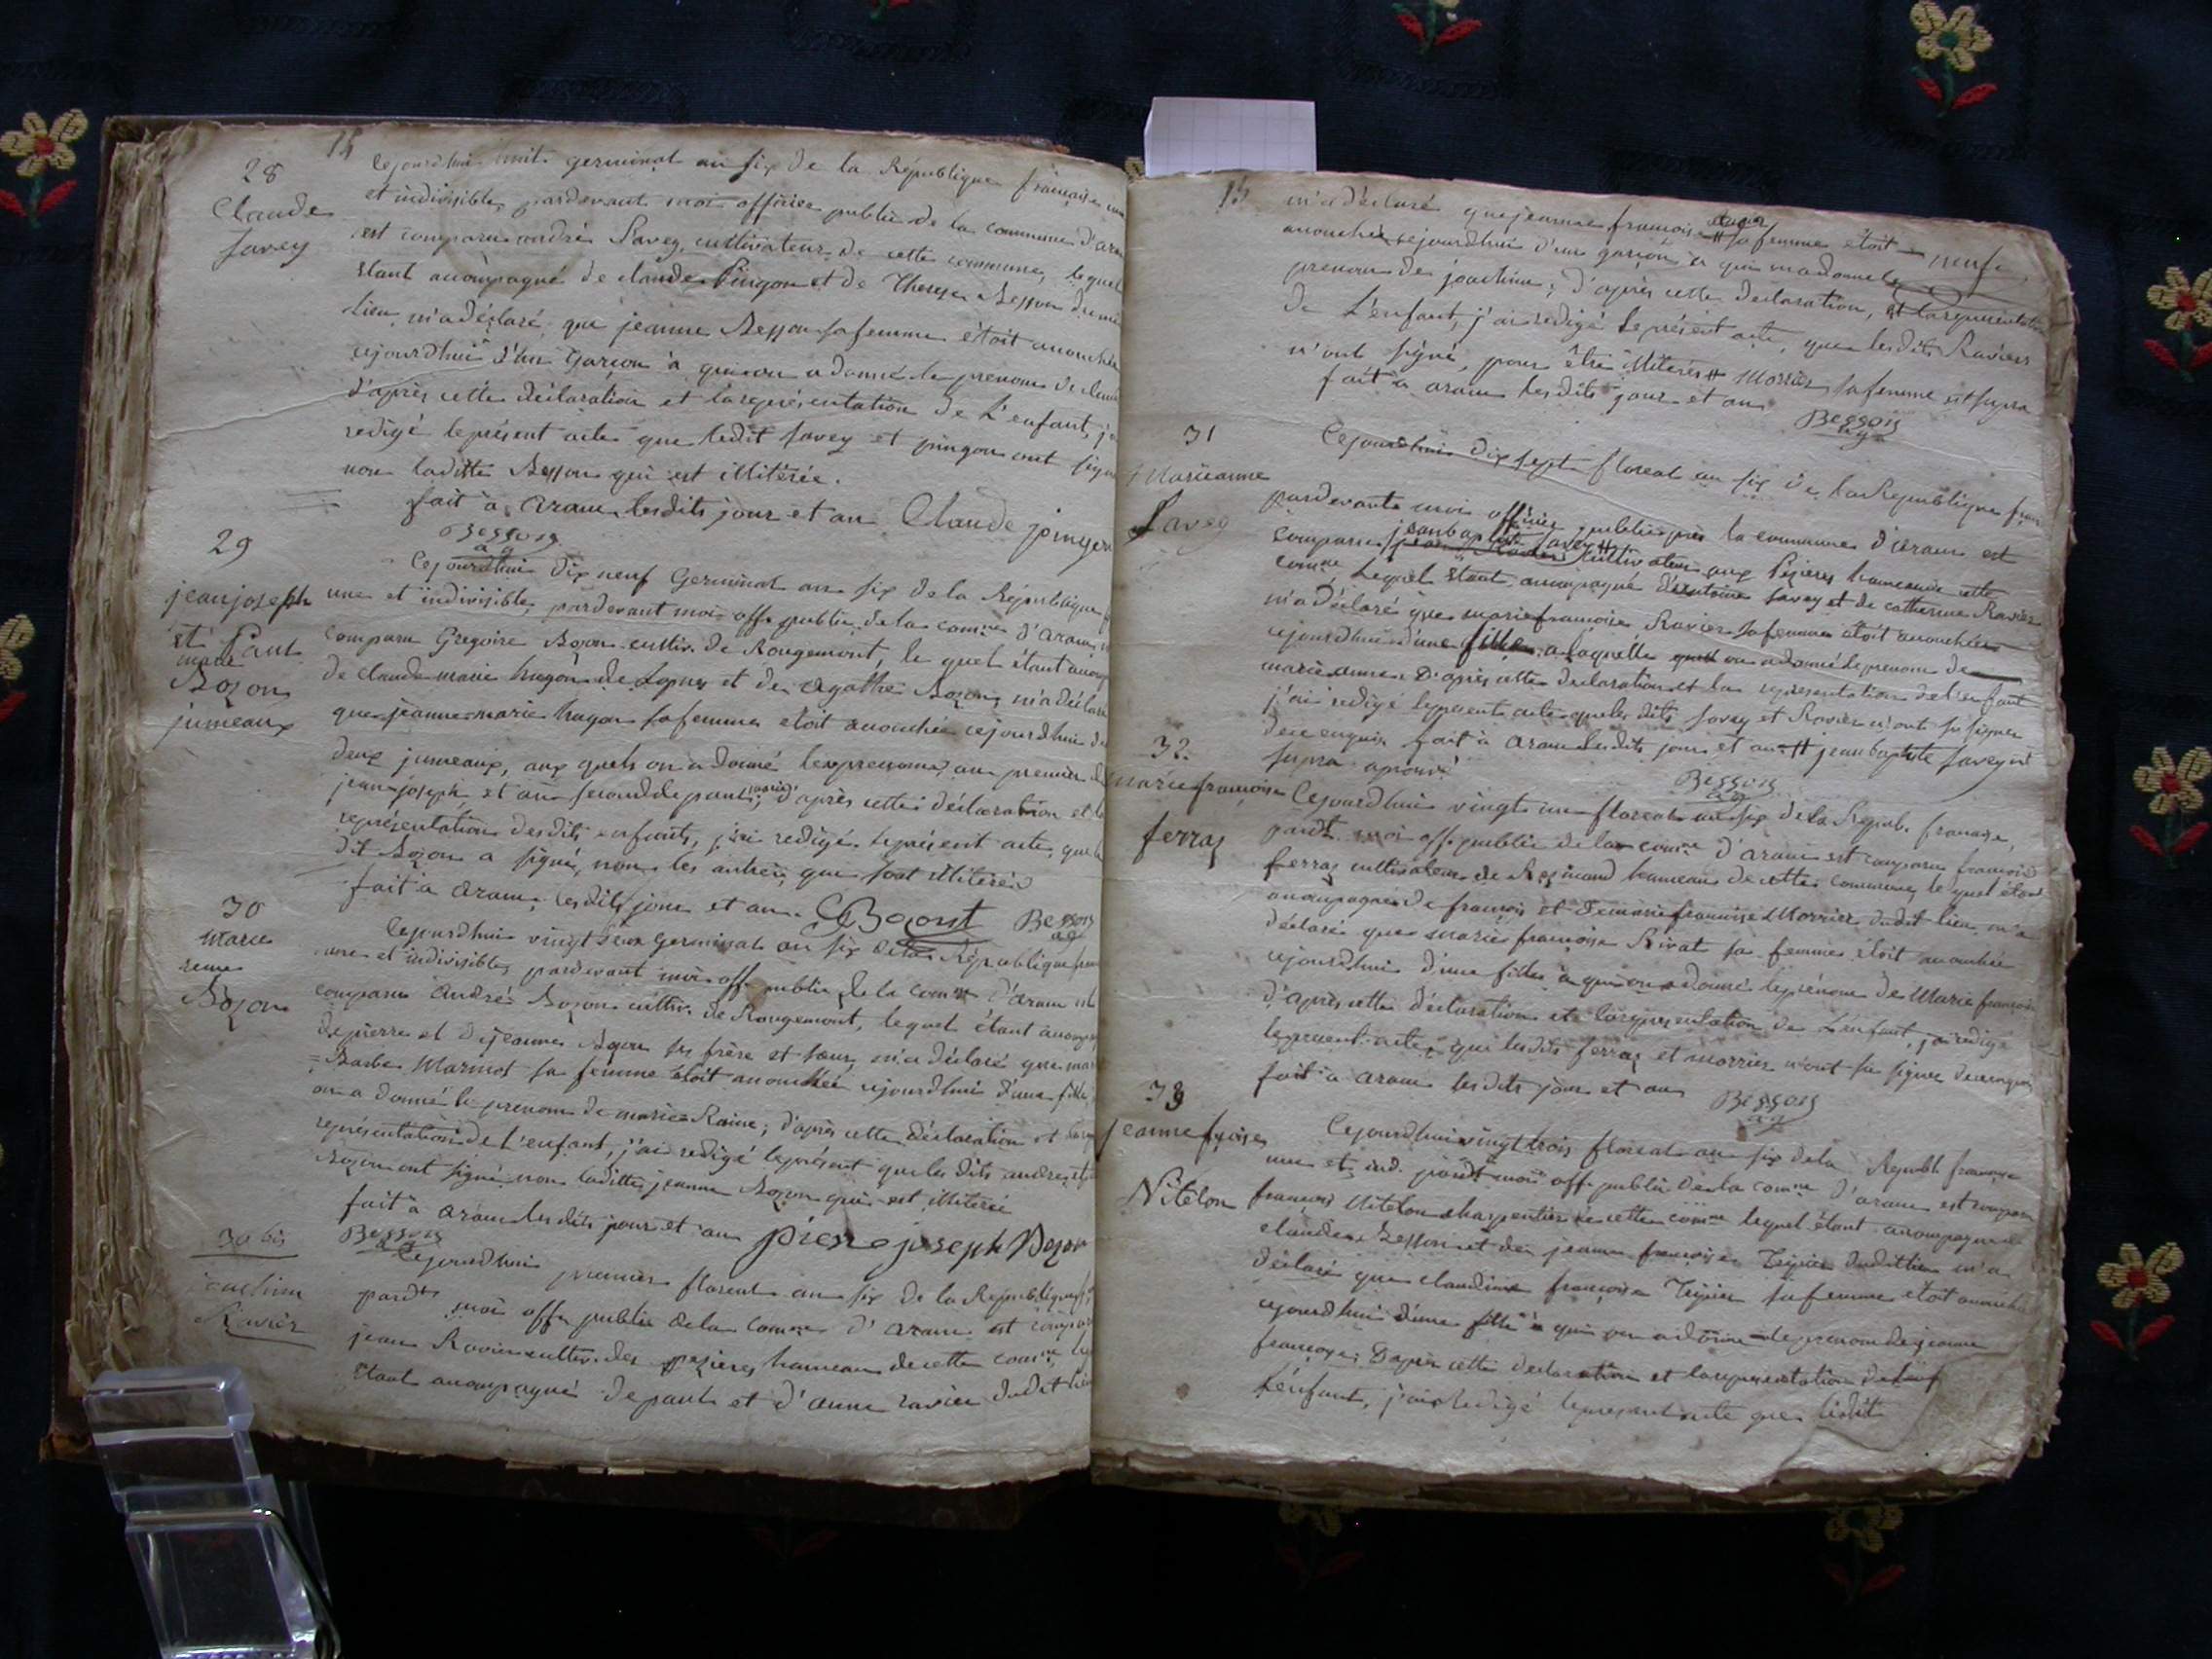 14
28
Claude
Savey
Cejourd'hui huit germinal an six de la République française une
et indivisible, pardevant moi officier public de la commune d'aran
est comparu andré Savey, cultivateur de cette commune, lequel
étant accompagné de claude Pingon et de Therese Besson du même
lieu, m'a déclaré que jeanne Besson sa femme étoit accouchée
cejourdhui d'un garçon à qui on a donné le prenom de claude
d'après cette déclaration et la représentation de L'enfant, j'ai
redigé le présent acte que ledit savey et pingon ont signé
non laditte Besson qui est illitérée.
fait à aran, les dits jour et an Claude pingon
Besson
ag
29
jean joseph
et Paul
marie
Bozon
jumeaux
Cejourdhui dix neuf Germinal an six de la République
une et indivisible, pardevant moi off. public de la comne d'aran
comparu Gregoire Bozon cultiv. de Rougemont, le quel étant accomp
de Claude marie hugon de Lopnes et de agathe Bozon, m'a déclaré
que jeanne marie hugon sa femme étoit accouchée cejourdhui de
deux jumeaux, aux quels on a donné les prenoms, au premier de
jean joseph, et au second de paul marie; d'après cette déclaration et la
représentation desdits enfants, j'ai redigé le présent acte, que le
dit Bozon a signé, non les autres, qui sont illitérés
fait à aran, lesdits jour et an. GBozont Besson
ag
30
Marie
reine
Bozon
Cejourdhui vingt deux germinal an six de la République fran
une et indivisible, pardevant moi off. public de la comne d'aran est
comparu André Bozon cultiv. de Rougemont, lequel étant accomp
de pierre et de jeanne Bozon ses frère et sœur, m'a déclaré que mar
=Barbe Marmot sa femme étoit accouchée cejourdhui d'une fille,
on a donné le prenom de marie=Raine; d'après cette déclaration et la
représentation de L'enfant, j'ai redigé le présent que les dits andré et
Bozon ont signé non laditte jeanne Bozon qui est illitérée
fait à aran les dits jour et an pierre joseph Bozon
Besson
ag
30 bis
joachim
Ravier
Cejourdhui premier floreal an six de la République
pardt moi off. public de la comne d'aran est comparu
jean Ravier cultiv. des pezieres hameau de cette comne, le
étant accompagné de paul et d'anne ravier dudit lieu
15
m'a déclaré que jeanne françoise # sa femme étoit
accouchée cejourdhui d'un garçon à qui on a donné le
prenom de joachim; d'après cette declaration, et la représentation
de L'enfant, j'ai redigé le présent acte, que les dits Raviers
n'ont signé, pour être illitérés # Morrier sa femme est supra
fait à aran les dits jour et an
Besson
ag
31
Marieanne
Savey
Cejourdhui dix sept floreal an six de la Republique fran
pardevant moi officier public près la commune d'aran est
comparu jeanbaptiste savey # cultivateur aux Pezieres hameau de cette
comne, Lequel étant accompagné d'antoine savey et de catherine Ravier
m'a déclaré que marie françoise Ravier sa femme étoit accouchée
cejourdhui d'une fille a laquelle on a donné le prenom de
marie anne. D'après cette declaration et la représentation de l'enfant
j'ai redigé le présent acte que les dits savey et Ravier n'ont su signer
de ce enquis fait à aran les dits jour et an # jean baptiste savey est
supra aprouvé
Besson
ag
32.
marie françoise
ferraz
Cejourdhui vingt un floreal an six de la Repub. française,
pardt moi off. public de la comne d'aran est comparu françois
ferraz cultivateur de Resinand hameau de cette commune, le quel étant
accompagné de françois et de marie françoise Morrier dudit lieu m'a
déclaré que marie françoise Rivat sa femme étoit accouchée
cejourdhui d'une fille à qui on a donné le prénom de Marie françoise
d'après cette déclaration et la représentation de L'enfant, j'ai redigé
le présent acte, que les dits ferraz et morrier n'ont su signer de ce enquis
fait à aran les dits jour et an
Besson
ag
33
jeanne fçoise
Nitelon
Cejourdhui vingt trois floreal an six de la Republ. française
une et ind. pardt moi off. public de la comne d'aran est comparu
françois Nitelon charpentier de cette comne lequel étant accompagné de
claude Besson et de jeanne françoise Trejier dudit lieu m'a
déclaré que claudine françoise Trejier sa femme étoit accouchée
cejourdhui d'une fille à qui on a donné le prenom de jeanne
françoise; D'après cette declaration et la représentation de
L'enfant, j'ai redigé le présent acte que ledit